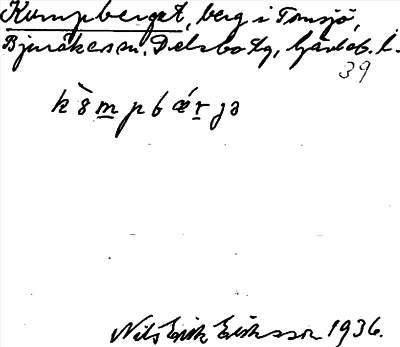 Kumpberget, berg i Tomsjö,
Bjuråkers sn. Delsbo tg, Gävleb. l.
39
Nils Erik Eriksson 1936.